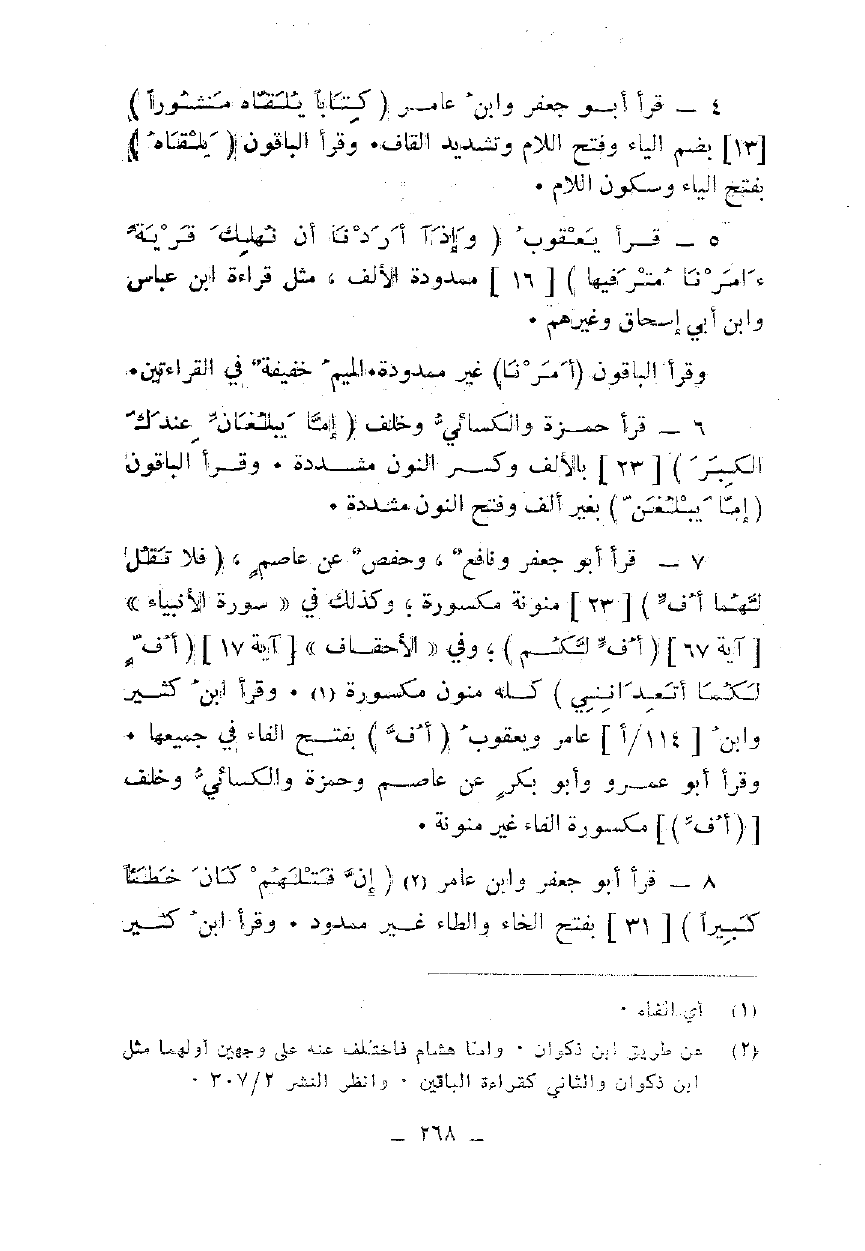 ٤ ــ قرأ أبــو جعفر وابنُ عامــر ( كِتَاباً يُلَقَّاه مَنْشُوراً )
[١٣] بضم الياء وفتح اللام وتشديد القاف٠ وقرأ الباقون ( يَلْقَاهُ )
بفتح الياء وسكون اللام ٠
٥ ــ قــرأ يَعْقوبُ ( وَإِذَآ أَرَدْنَا أن نُهْلِكَ قَرْيَةً
ءَامَرْنَا مُتْرَفيها ) [ ١٦ ] ممدودة الألف ، مثل قراءة ابن عباس
وابن أبي إسحاق وغيرهم ٠
وقرأ الباقون (أَمَرْنَا) غير ممدودة٠الميمُ خفيفةٌ في القراءتين٠
٦ ــ قرأ حمــزة والكسائيُّ وخلف ( إِمَّا يَبلُغَانِّ عِندَكَ
الكِبَرَ ) [ ٢٣ ] بالألف وكســر النون مشــددة ٠ وقــرأ الباقون
( إِمَّا يَبْلُغَنَّ ) بغير ألف وفتح النون مشددة ٠
٧ ــ قرأ أبو جعفر ونافعٌ ، وحفصٌ عن عاصمٍ ، ( فلا تَقُلْ
لَهُما أُفٍّ ) [ ٢٣ ] منونة مكسورة ، وكذلك في « سورة الأنبياء »
[ آية ٦٧ ] ( أُفٍّ لَكُــم ) ، وفي « الأحقــاف » [ آية ١٧ ] ( أُفٍّ
لَكُمَا أَتَعِدَانِنِي ) كــله منون مكسورة (١) ٠ وقرأ ابنُ كثــير
وابنُ [ ١١٤/أ ] عامر ويعقوبُ ( أُفَّ ) بفتــح الفاء في جميعها ٠
وقرأ أبو عمــرو وأبو بكرٍ عن عاصــم وحمزة والكسائيُّ وخلف
[ ( أُفِّ ) ] مكسورة الفاء غير منونة ٠
٨ ــ قرأ أبو جعفر وابن عامر (٢) ( إِنَّ قَتْلَهُمْ كَانَ خَطَئاً
كَبِيراً ) [ ٣١ ] بفتح الخاء والطاء غــير ممدود ٠ وقرأ ابنُ كثــير
(١) أي الفاء ٠
(٢) عن طريق ابن ذكوان ٠ وامّا هشام فاختلف عنه على وجهين أولهما مثل
ابن ذكوان والثاني كقراءة الباقين ٠ وانظر النشر ٣٠٧/٢ ٠
ــ ٢٦٨ ــ